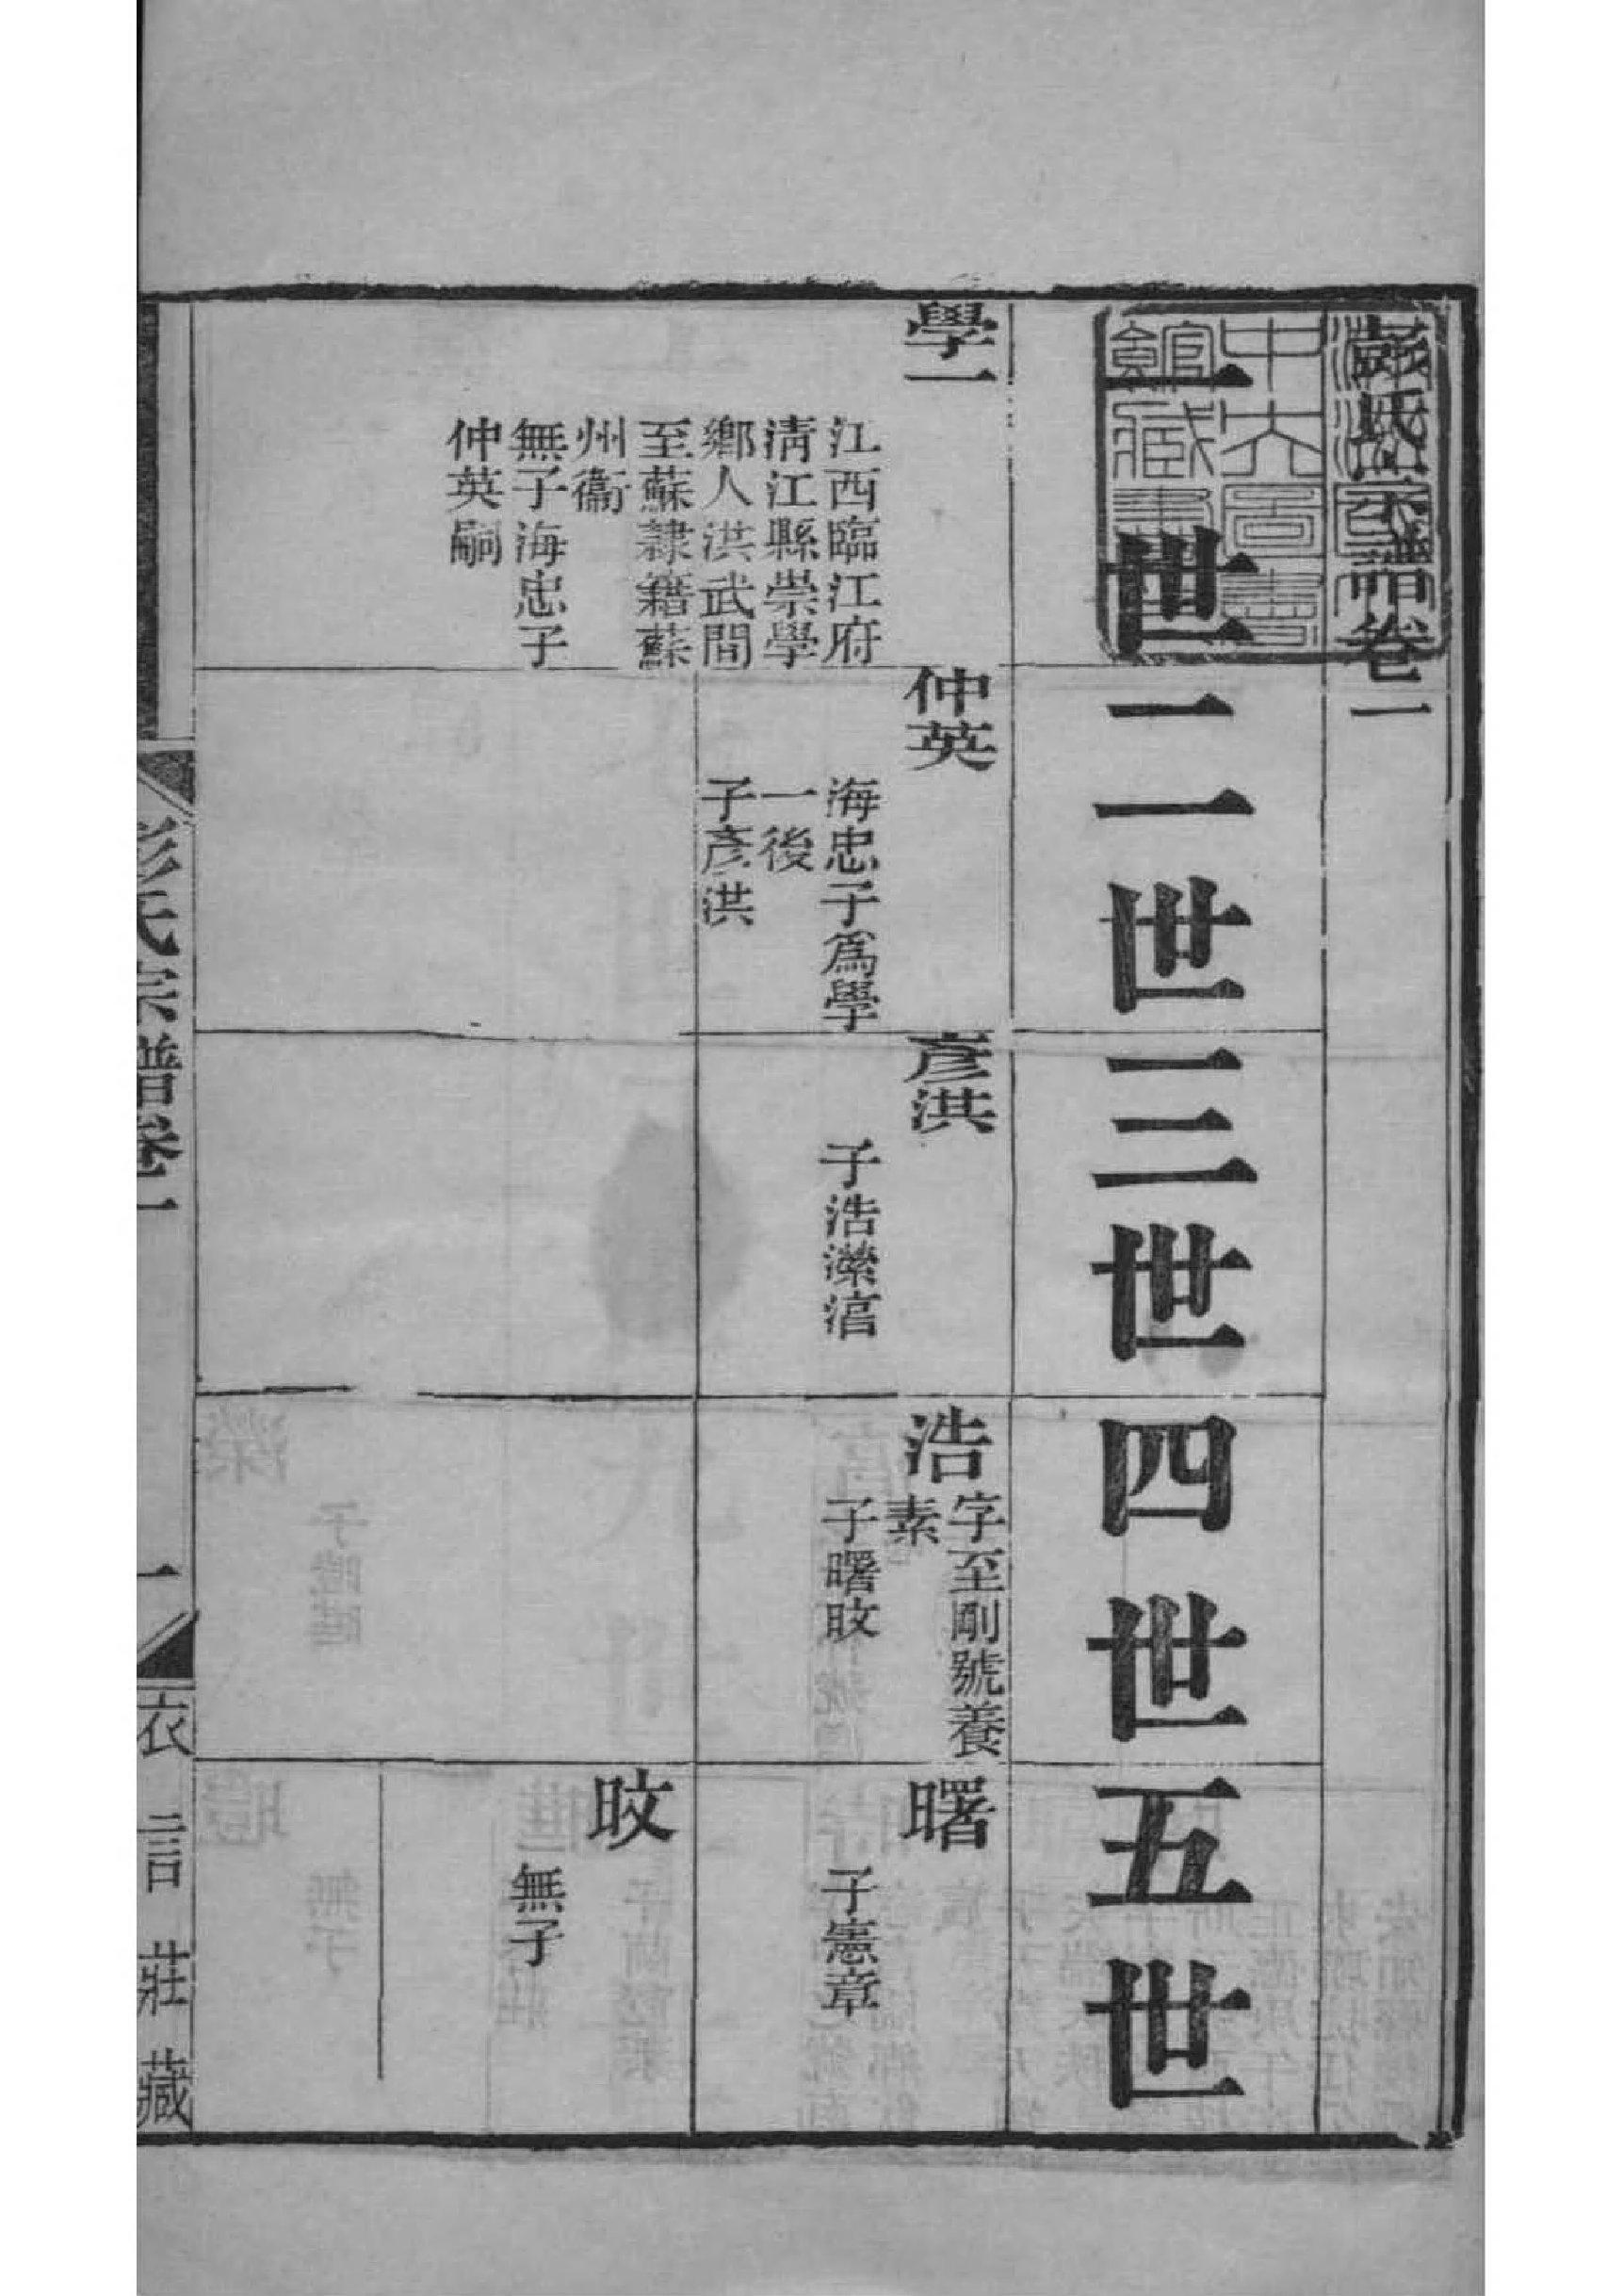 彭氏宗譜卷一
一世
二世
三世
四世
五世
學一
江西臨江府
清江縣崇學
鄉人洪武間
至蘇隷籍蘇
州衞
無子海忠子
仲英嗣
仲英
海忠子爲學
一後
子彥洪
彥洪
子浩濴涫
浩
字至剛號養
素
子曙旼
曙
子憲章
旼
無子
彭氏宗譜卷一
一
衣言莊藏